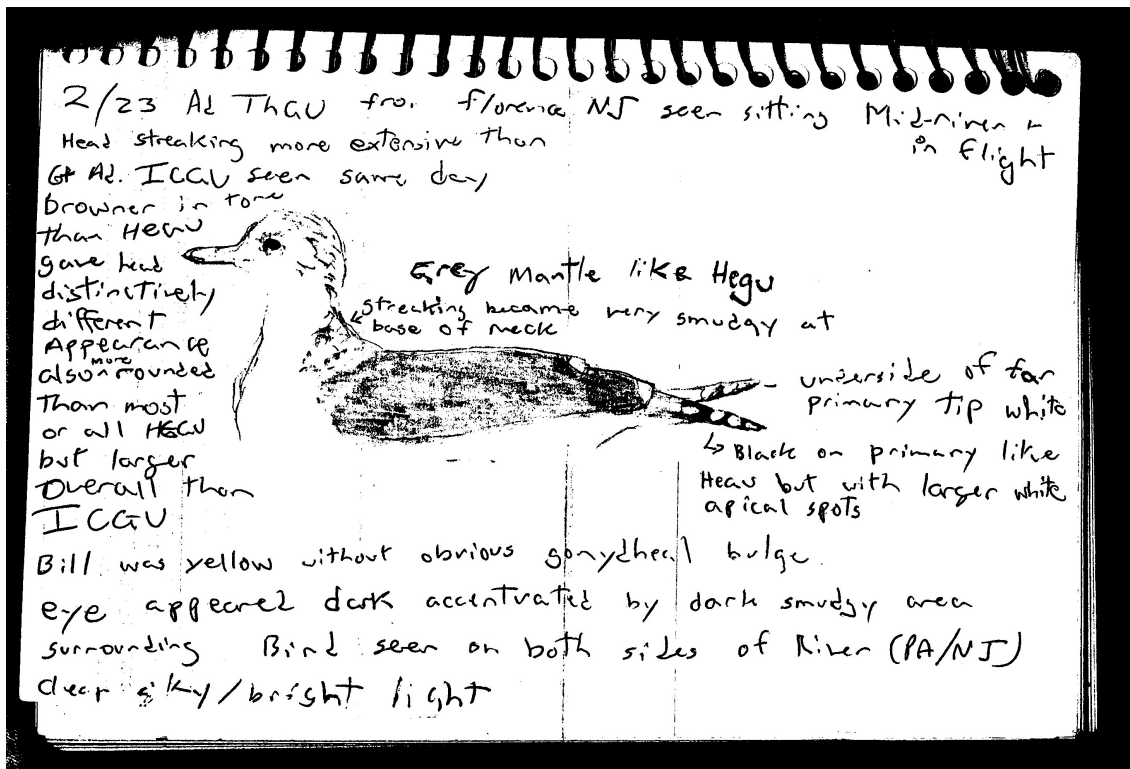 2/23 Ad THGU from Florence NJ seen sitting Mid-river +
in flight
Head streaking more extensive than
Ad. ICGU seen same day
browner in tone
than HEGU
gave head
distinctively
different
Appearance
also more rounded
than most
or all HEGU
but larger
Overall than
ICGU
Grey mantle like Hegu
streaking became very smudgy at
base of neck
underside of far
primary tip white
↳ Black on primary like
Hegu but with larger white
apical spots
Bill was yellow without obvious gonydheal bulge
eye appeared dark accentuated by dark smudgy area
surrounding Bird seen on both sides of River (PA/NJ)
clear sky/bright light